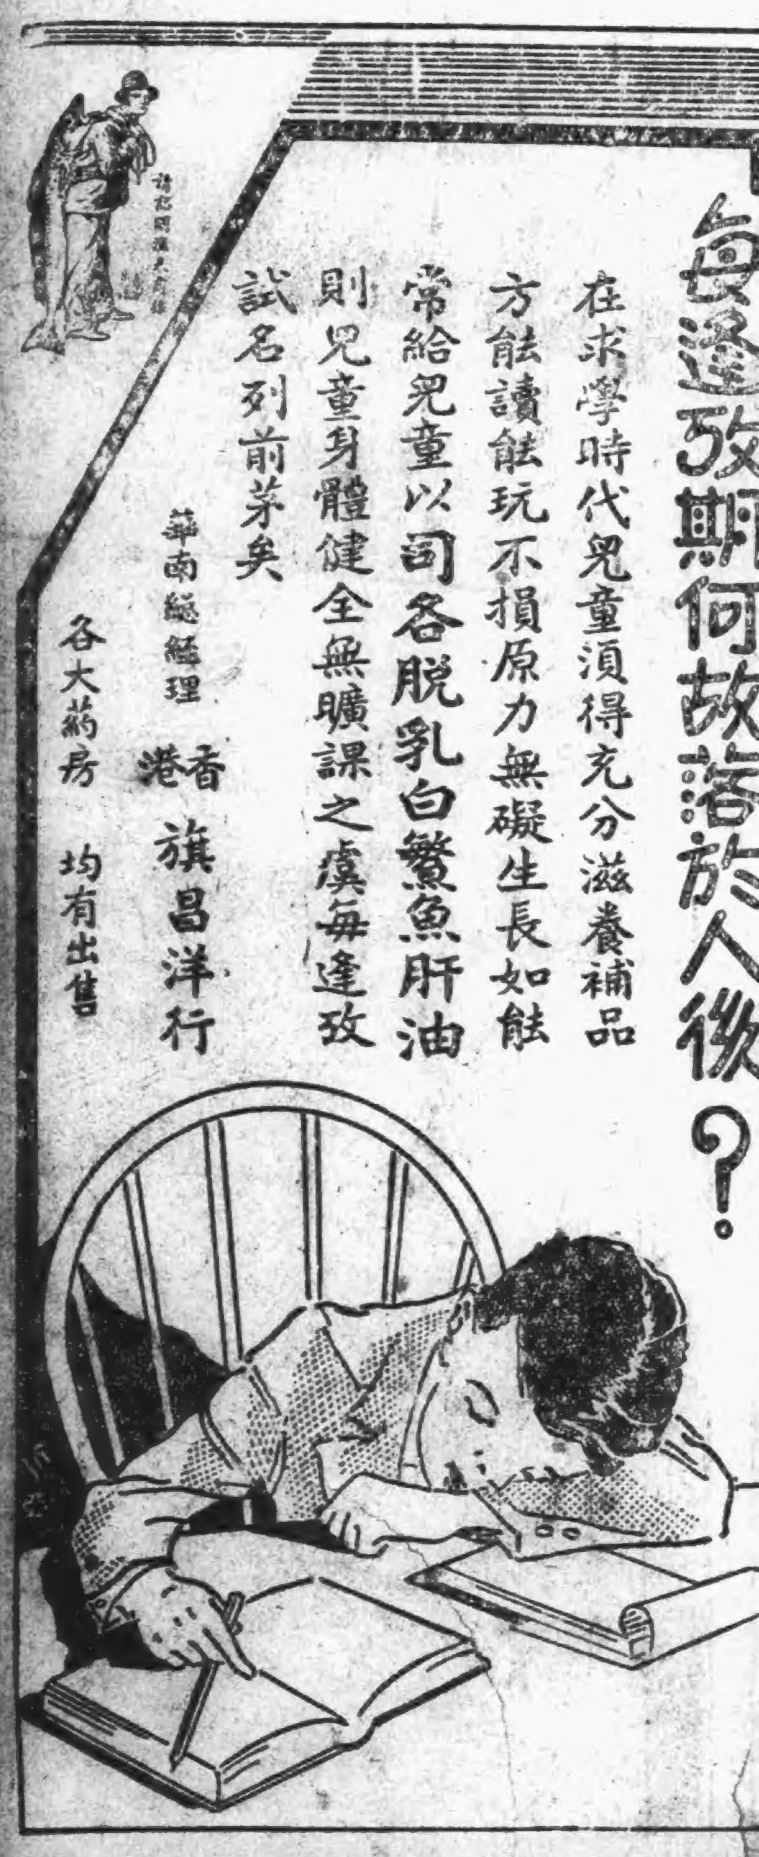 每逢攷期何故落於人後？
在求學時代兒童須得充分滋養補品
方能讀能玩不損原力無礙生長如能
常給兒童以司各脱乳白鰵魚肝油
則兒童身體健全無曠課之虞每逢攷
試名列前茅矣
華南總經理
香港
旗昌洋行
各大葯房 均有出售